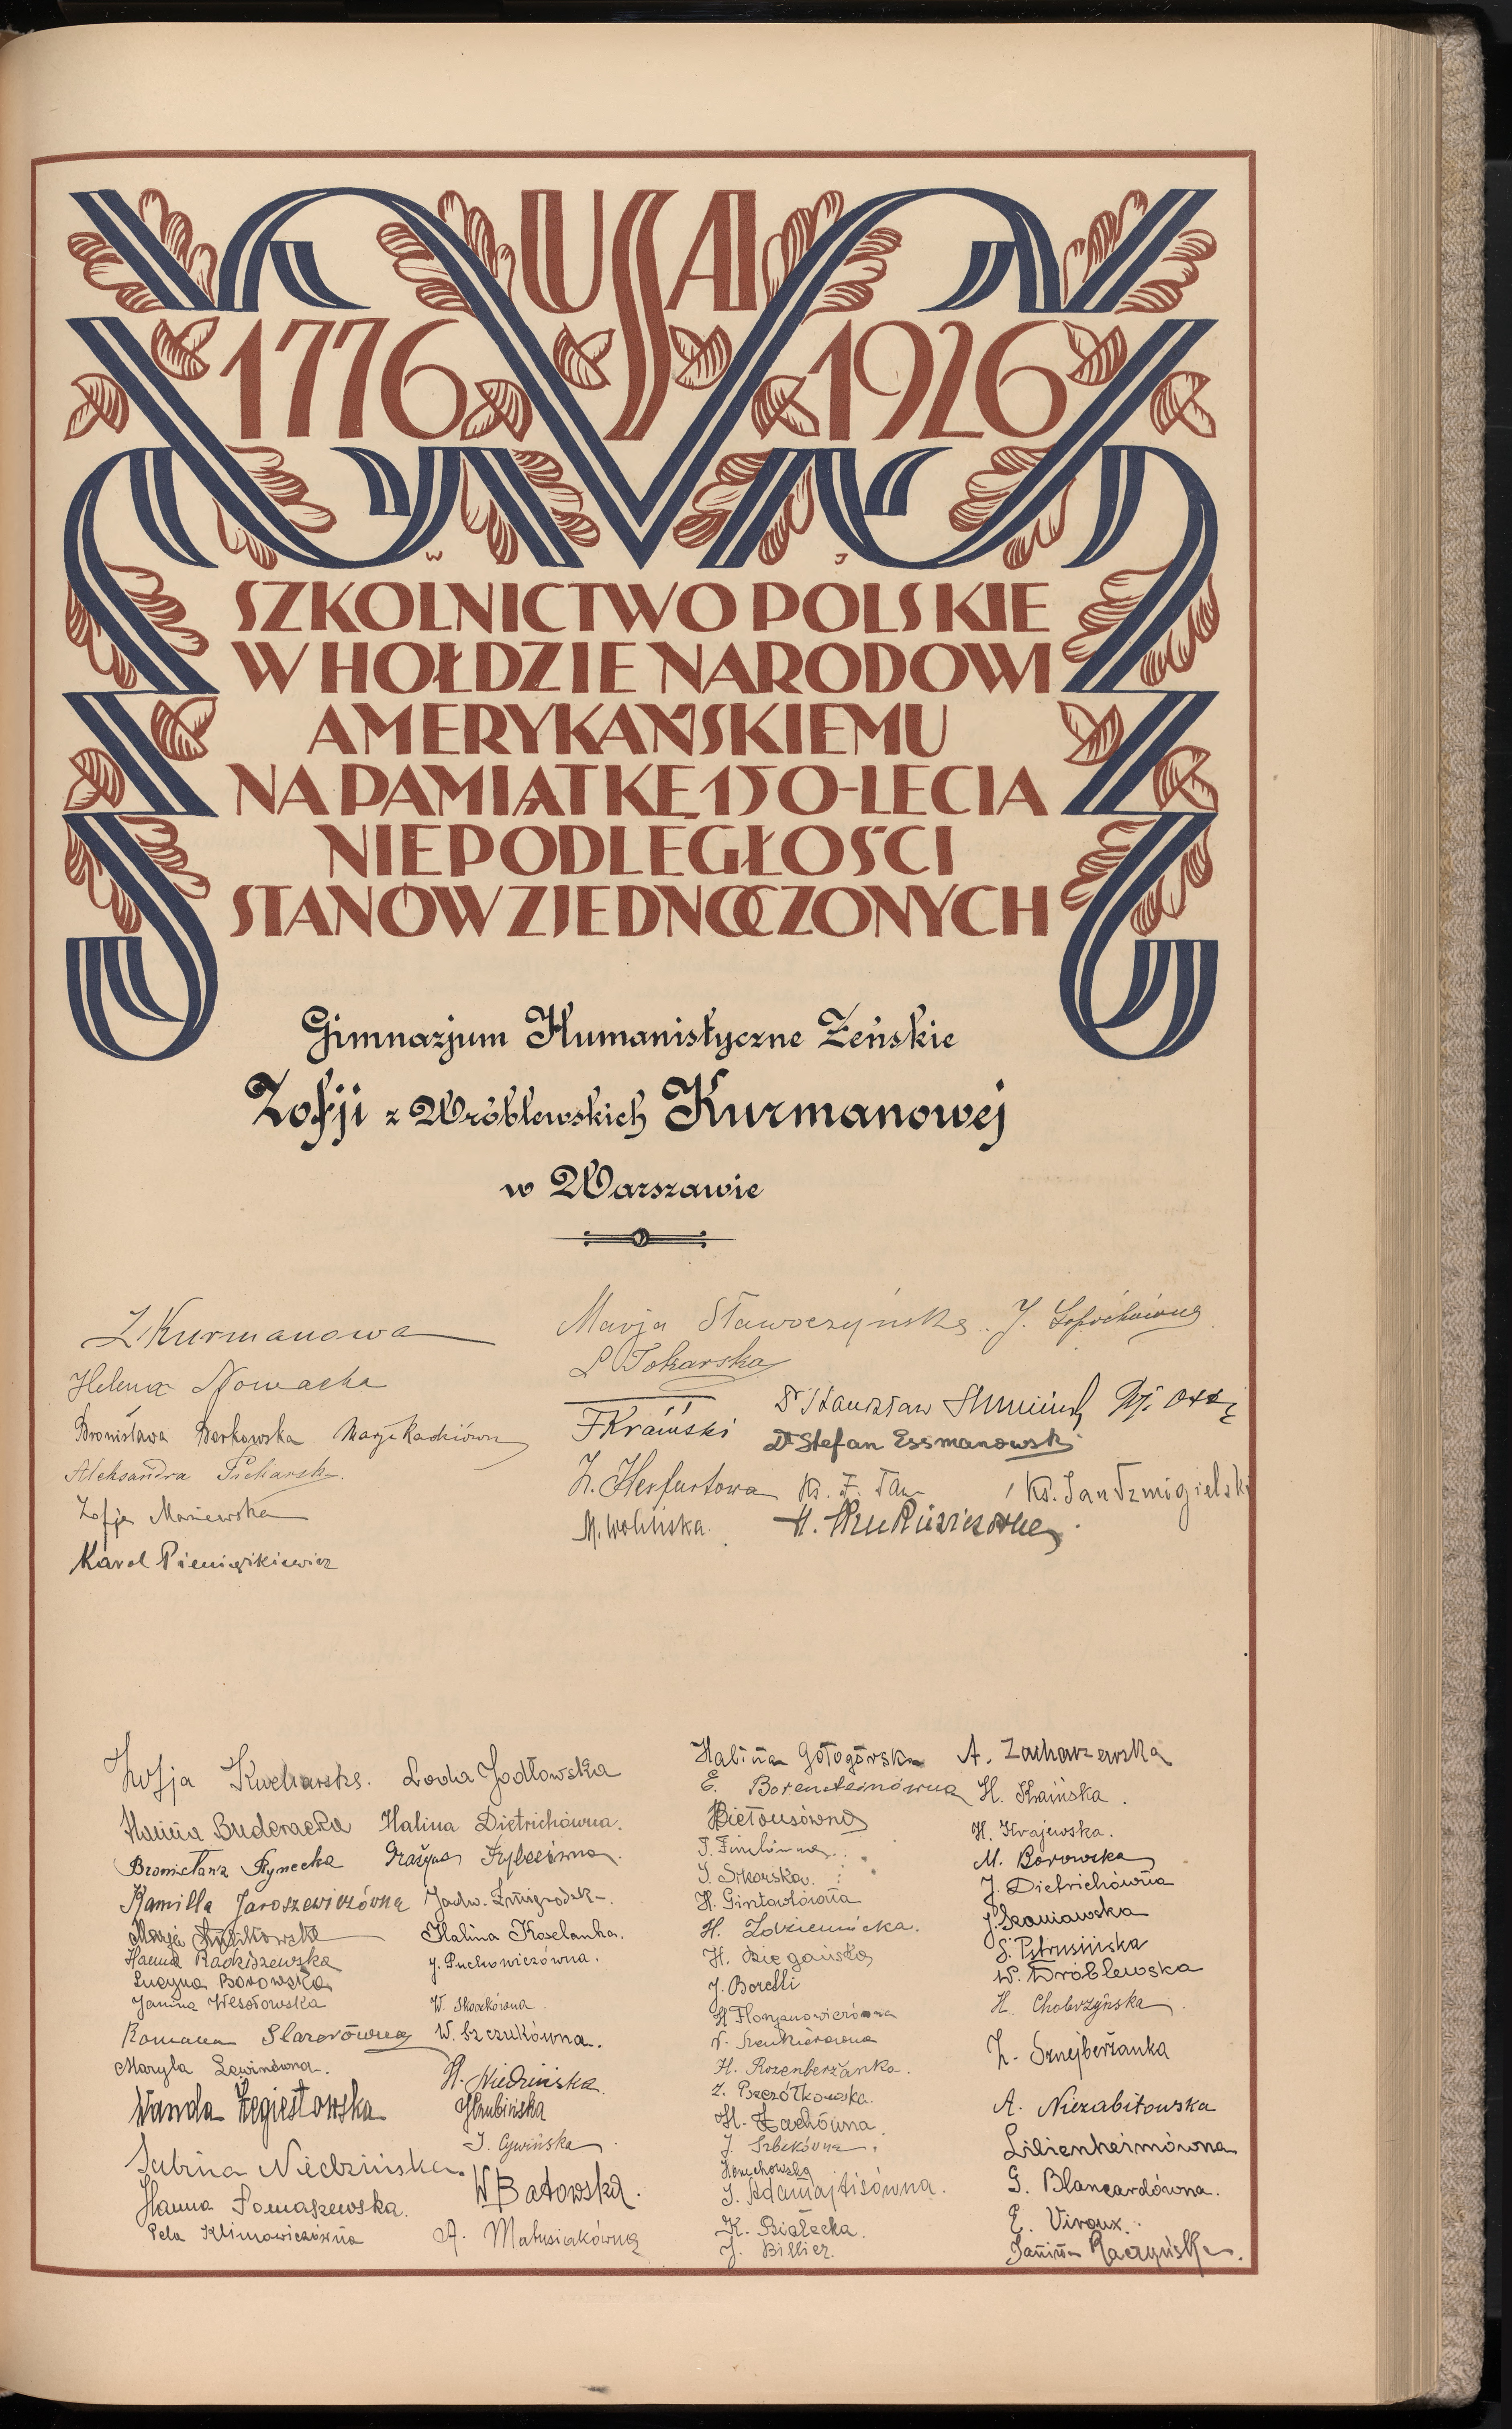 USA
1776 1926
W J
SZKOLNICTWO POLSKIE
W HOŁDZIE NARODOWI
AMERYKAŃSKIEMU
NA PAMIĄTKĘ 150-LECIA
NIEPODLEGŁOŚCI
STANÓW ZJEDNOCZONYCH
Gimnazjum Humanistyczne Żeńskie
Zofji z Wróblewskich Kurmanowej
w Warszawie
Z Kurmanowa
Helena Nowacka
Bronisława Borkowska Marja
Aleksandra
Zofja Maniewska
Karol Pieniążkiewicz
Marja Sławoczyńska. J.
L Tokarska
Dr Stanisław
F Kraiński
Dr Stefan Essmanowski
Z. Herfurtowa Ks. F. Ks. Jan Tzmigielski
M. Wolińska. H.
Zofja Kucharska.
Hanna Buderacka
Bronisława Rynecka
Kamilla Jaroszewiczówna
Marja
Hanna Radziszewska
Lucyna Borowska
Janina Wesołowska
Romana
Maryla Lewinówna.
Wanda Żegiestowska
Sabina Niedzińska.
Hanna Tomaszewska.
Pela Klimowiczówna
Loda Jodłowska
Halina Dietrichówna.
Grażyna
Jadw. Żmigrodzk-.
Halina Koselanka.
J. Puchowiczówna.
W. Skoczkówna.
W. Szczukówna.
H. Niedzińska.
Hrubińska
J. Cywińska.
W Batowska.
A. Matusiakówna
Halina Gołogórska
E. Borensteinówna
Biełousówna
J. Sikorska.
H. Gintowtówna
H. Zdziennicka.
H. Biegańska
J. Borelli
H Florjanowiczówna
H. Rozenberżanka.
Z. Pszczółkowska.
H. Zachówna.
J. Szbekówna.
Honychowska
J. Adamajtisówna.
K. Białecka.
J. Billier.
A. Zacharzewska
H. Kraińska.
H. Krajewska.
M. Borowska
J. Dietrichówna
J. Szaniawska
S. Pstrusińska
W. Wróblewska
H. Chobrzyńska.
Z. Sznejberżanka
A. Niezabitowska
Lilienheimówna
G. Blancardówna.
E. Viroux.
Janina Raczyńska.